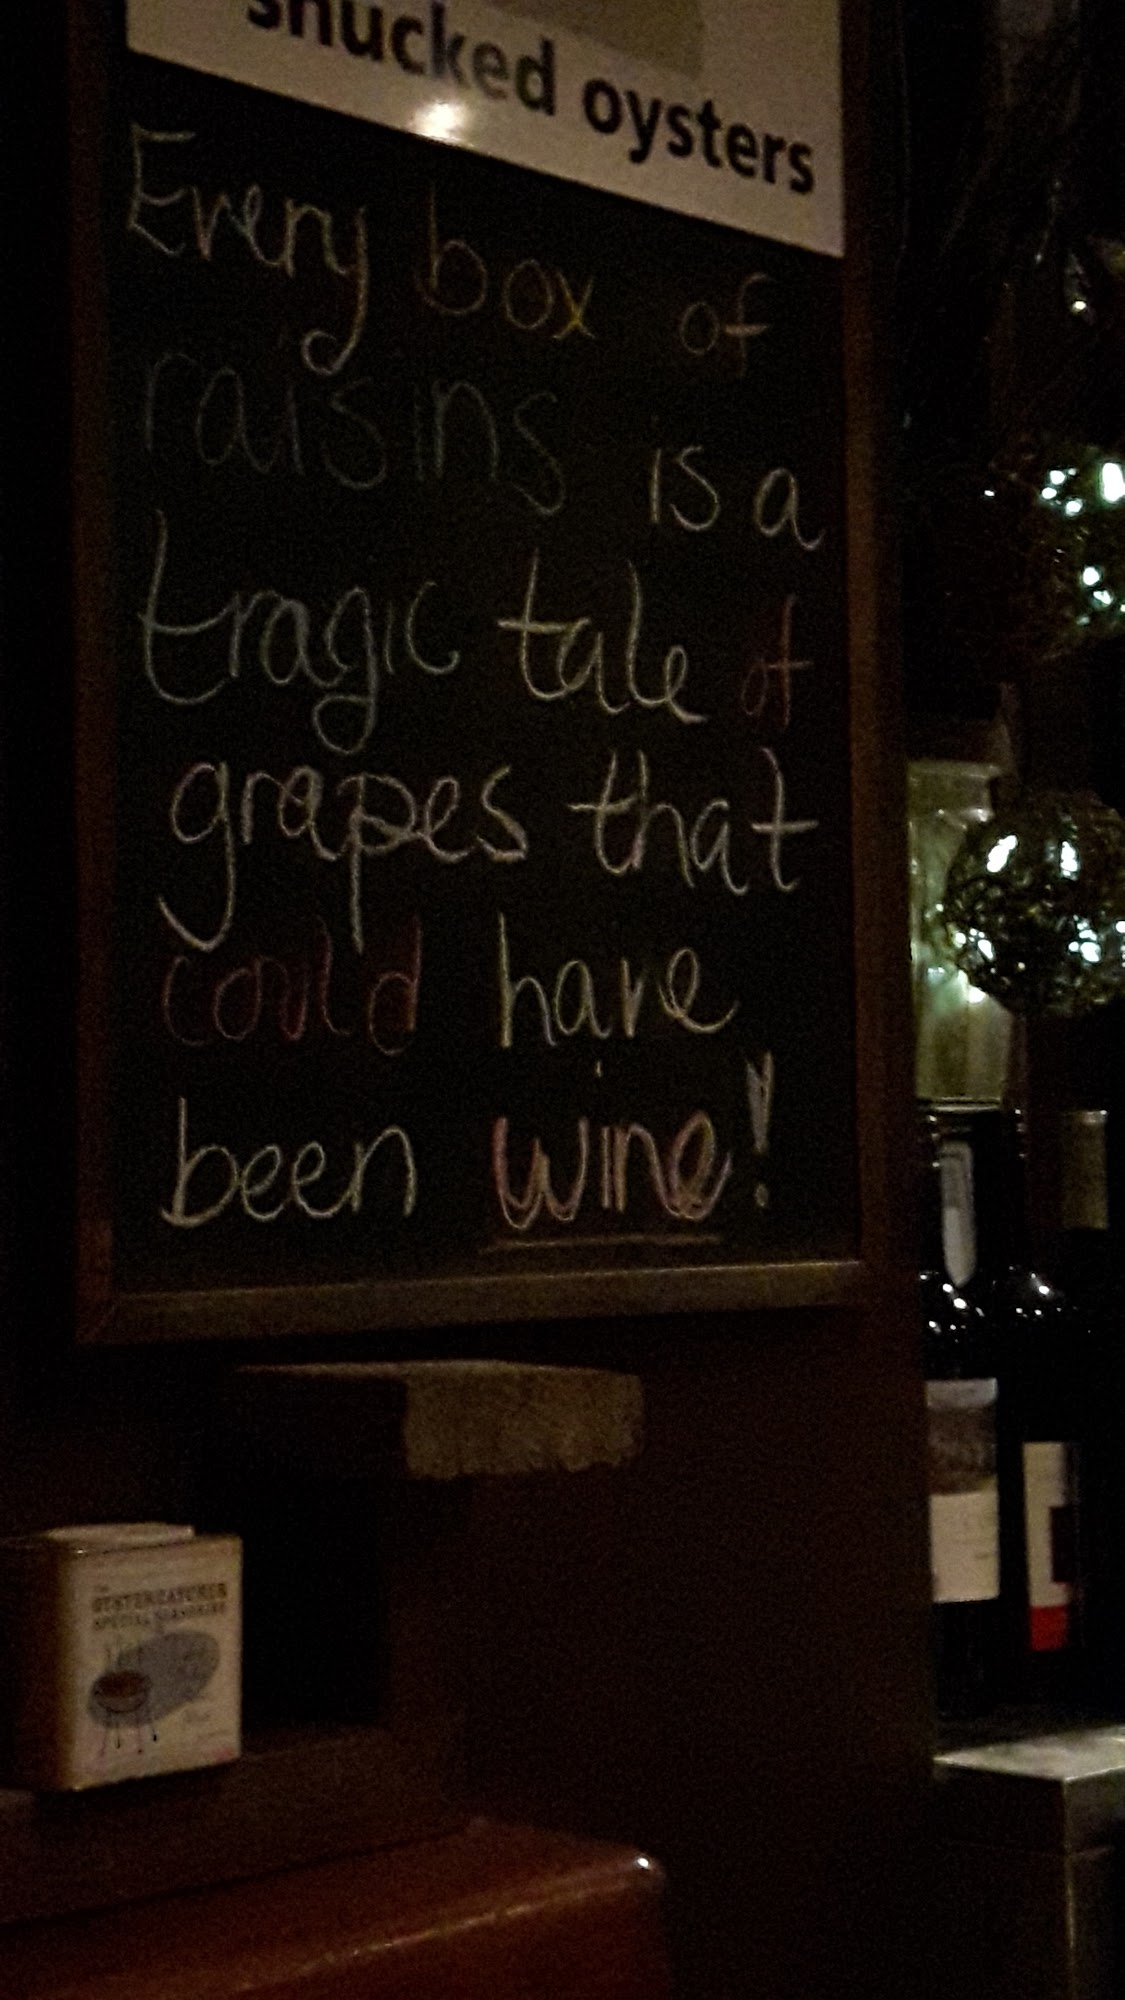 shucked oysters
Every box of
raisins is a
tragic tale of
grapes that
could have
been wine!
THE
OYSTERCATCHER
SPECIAL